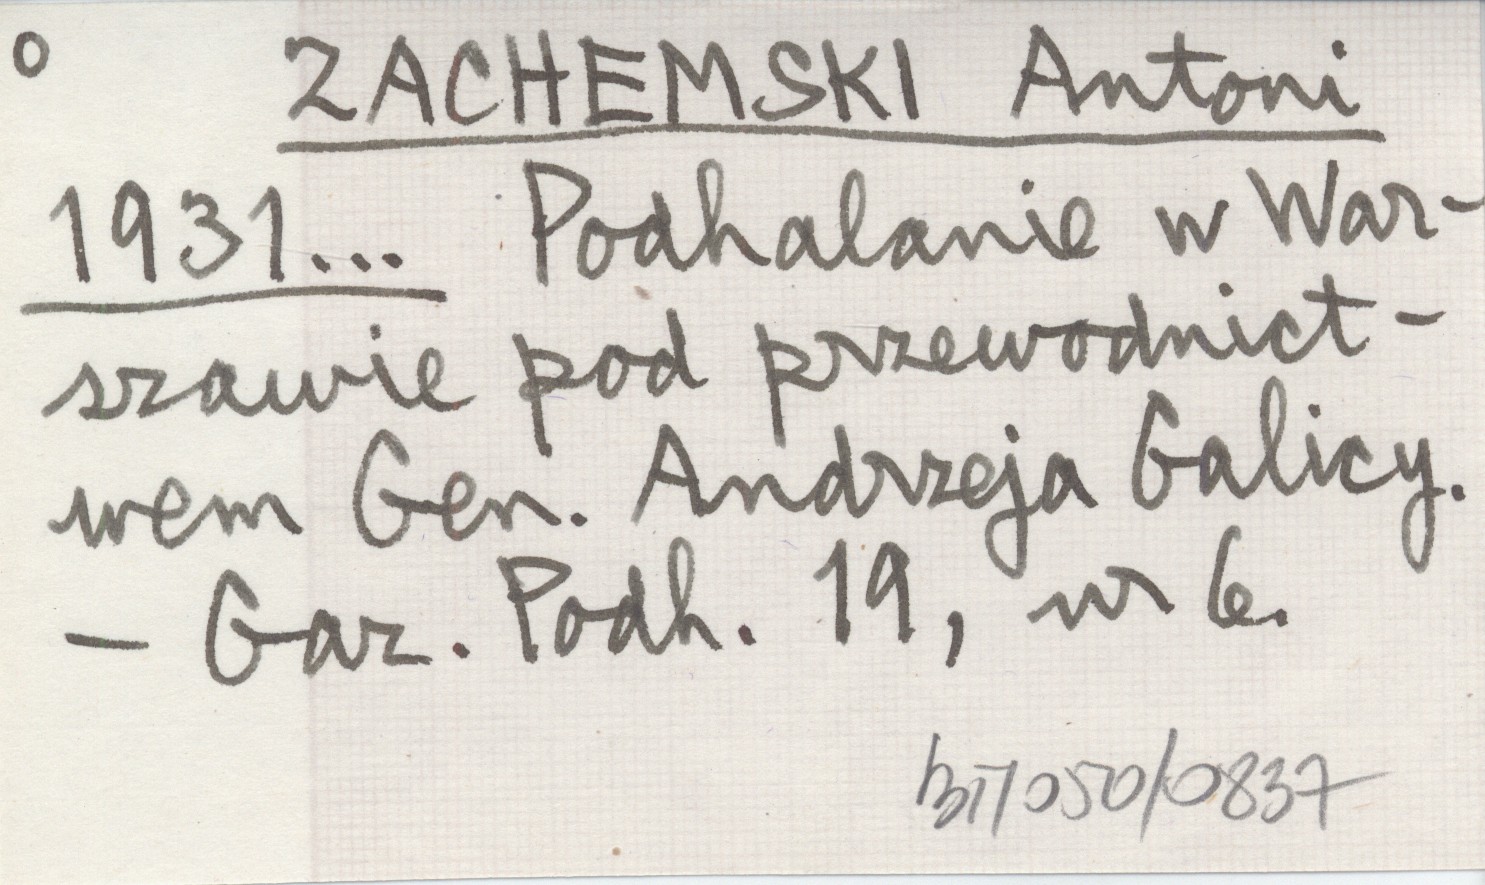 o ZACHEMSKI Antoni
1931... Podhalanie w War-
szawie pod przewodnict-
wem Gen. Andrzeja Galicy.
– Gaz. Podh. 19, nr 6.
BT/050/0837